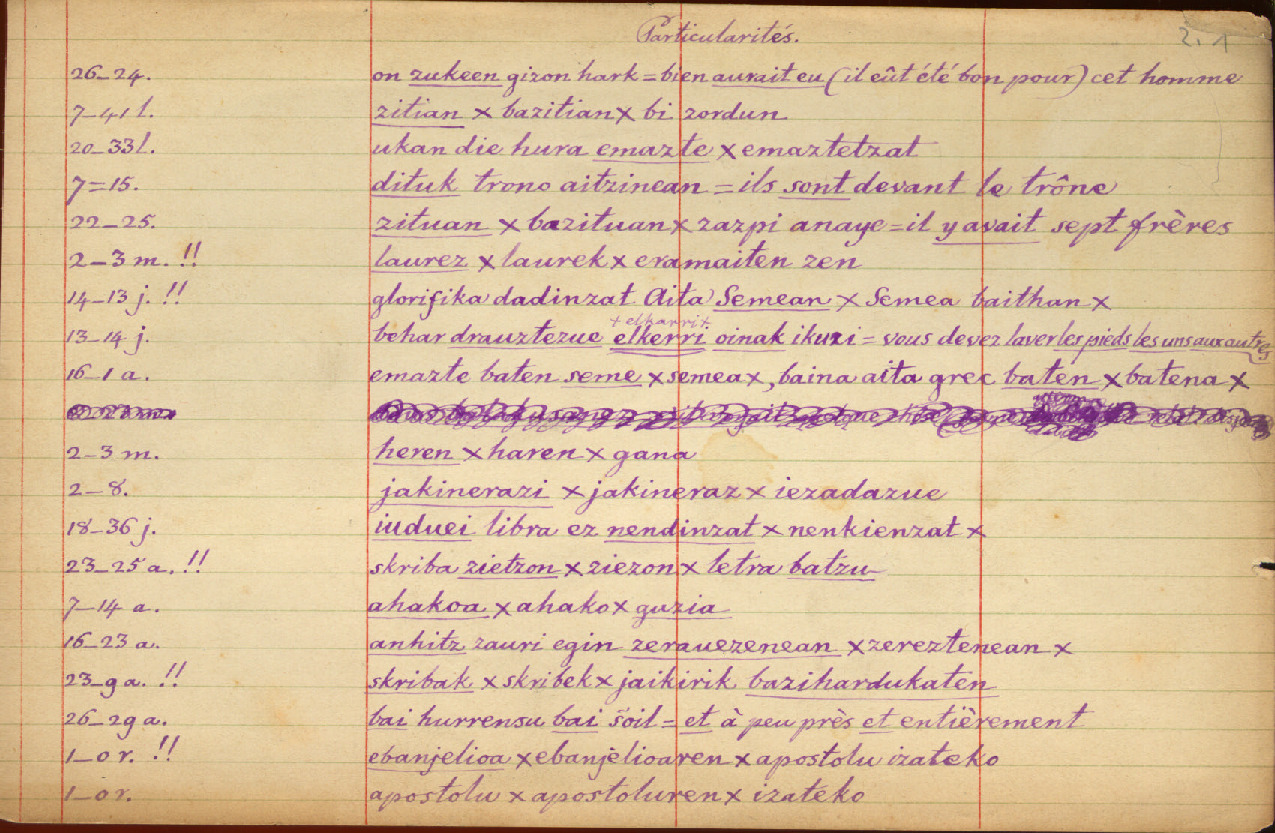 Particularités.
2.1
26_24. on zukeen gizon hark = bien aurait eu (il eût été bon pour) cet homme
7_41 l. zitian x bazitian x bi zordun
20_33 l. ukan die hura emazte x emaztetzat
7=15. dituk trono aitzinean = ils sont devant le trône
22_25. zituan x bazituan x zazpi anaye = il y avait sept frères
2_3 m. !! laurez x laurek x eramaiten zen
14_13 j. !! glorifika dadinzat Aita Semean x Semea baithan x
+ elkarri +
13_14 j. behar drauztezue elkerri oinak ikuzi = vous devez laver les pieds les uns aux autres
16_1 a. emazte baten seme x semea x, baina aita grec baten x batena x
2_3 m. heren x haren x gana
2_8. jakinerazi x jakineraz x iezadazue
18_36 j. iuduei libra ez nendinzat x nenkienzat x
23_25 a. !! skriba zietzon x ziezon x letra batzu
7_14 a. ahakoa x ahako x guzia
16_23 a. anhitz zauri egin zerauezenean x zereztenean x
23_9 a. !! skribak x skribek x jaikirik bazihardukaten
26_29 a. bai hurrensu bai soil = et à peu près et entièrement
1_0 r. !! ebanjelioa x ebanjelioaren x apostolu izateko
1_0 r. apostolu x apostoluren x izateko